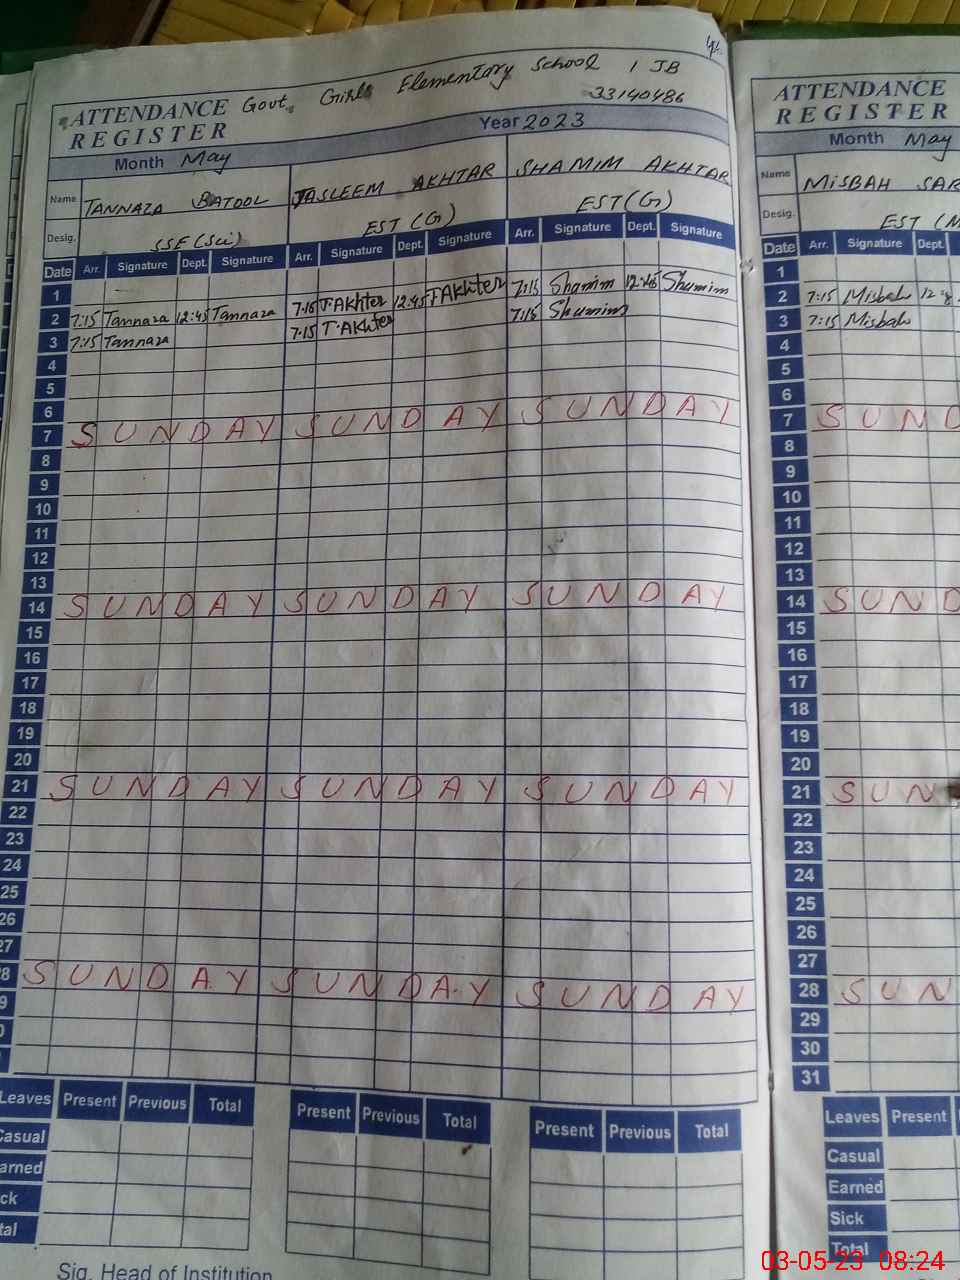 Govt. Girls Elementary School 1 JB
33140486
ATTENDANCE
REGISTER
Year 2023
Month May
Name TANNAZA BATOOL TASLEEM AKHTAR SHAMIM AKHTAR
Desig. SSE (Sci) EST (G) EST (G)
Date Arr. Signature Dept. Signature Arr. Signature Dept. Signature Arr. Signature Dept. Signature
1
2 7:15 Tannaza 12:45 Tannaza 7:15 T.Akhter 12:45 T.Akhter 7:15 Shamim 12:45 Shamim
3 7:15 Tannaza 7:15 T.Akhter 7:15 Shamim
4
5
6
7 SUNDAY SUNDAY SUNDAY
8
9
10
11
12
13
14 SUNDAY SUNDAY SUNDAY
15
16
17
18
19
20
21 SUNDAY SUNDAY SUNDAY
22
23
24
25
26
27
8 SUNDAY SUNDAY SUNDAY
9
Leaves Present Previous Total Present Previous Total Present Previous Total
Casual
arned
ck
tal
Sig. Head of Institution
ATTENDANCE
REGISTER
Month May
Name MISBAH SAR
Desig. EST (M
Date Arr. Signature Dept.
1
2 7:15 Misbah 12
3 7:15 Misbah
4
5
6
7 SUND
8
9
10
11
12
13
14 SUND
15
16
17
18
19
20
21 SUN
22
23
24
25
26
27
28 SUN
29
30
31
Leaves Present
Casual
Earned
Sick
Total
03-05-23 08:24